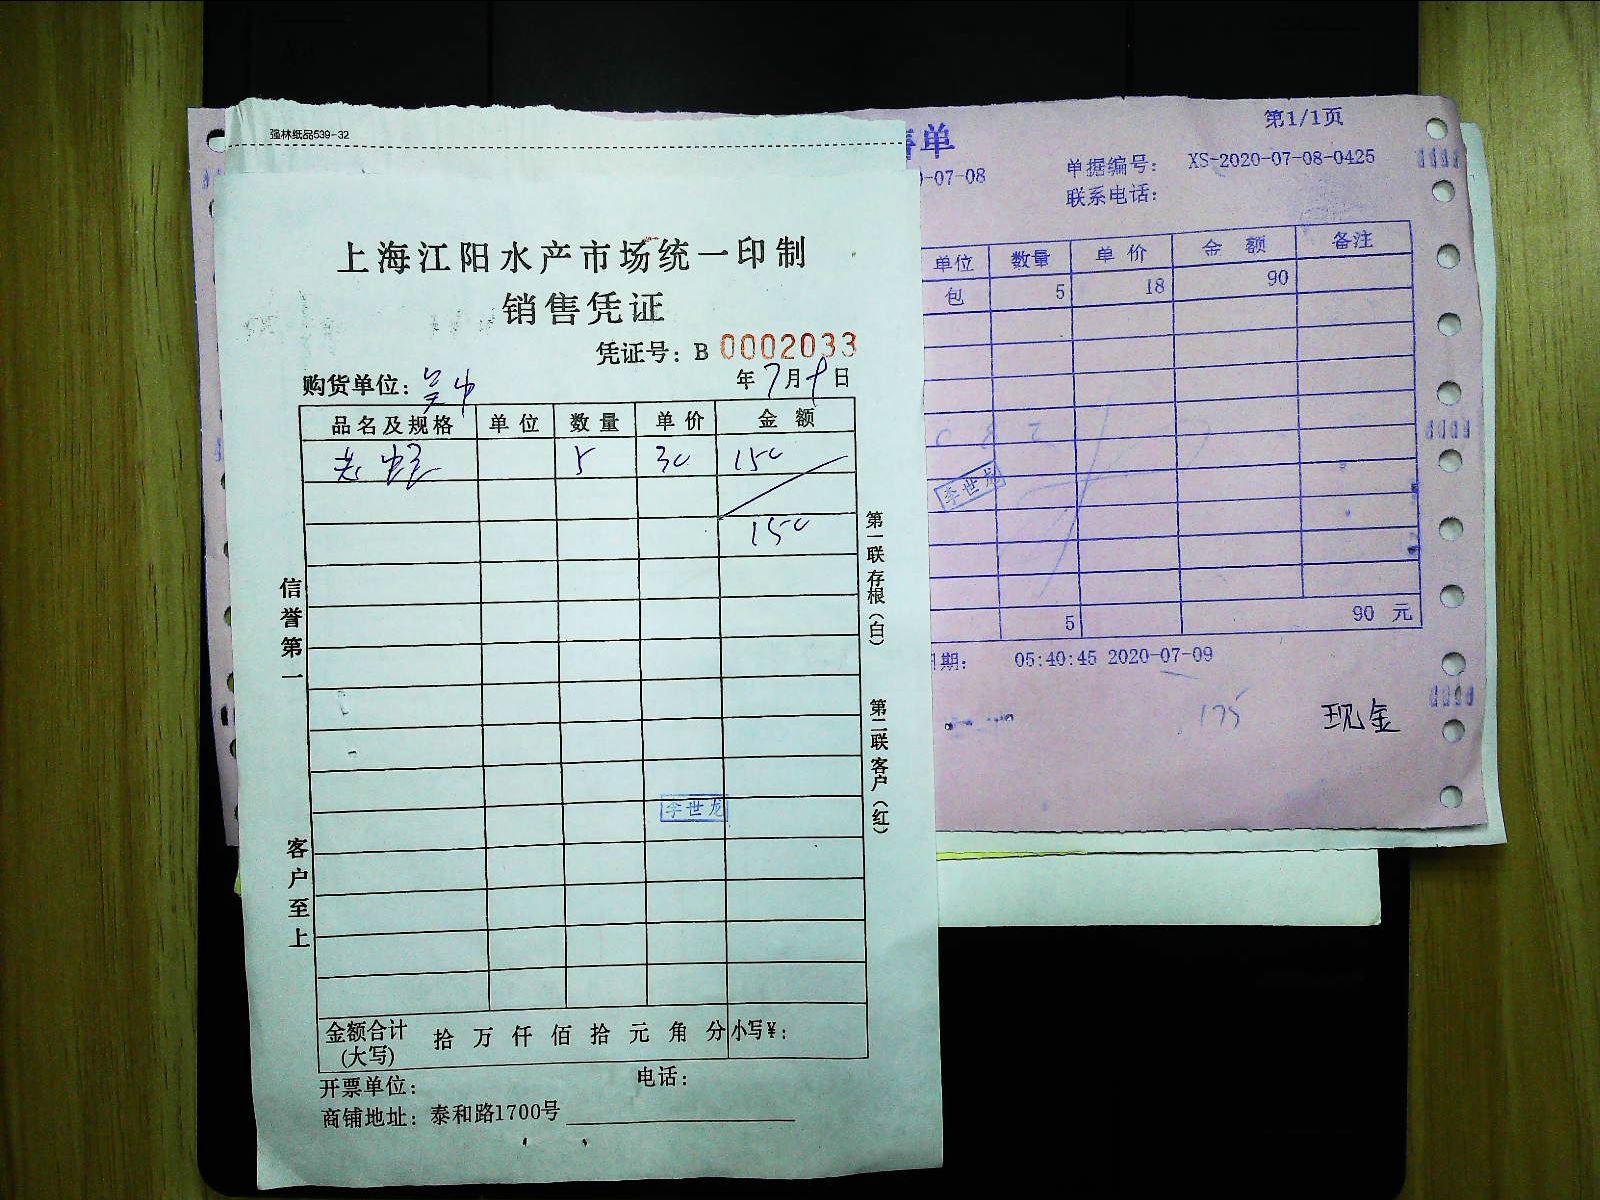 强林纸品539-32
上海江阳水产市场统一印制
销售凭证
凭证号：B 0002033
购货单位：吴中
年7月9日
品名及规格 单位 数量 单价 金额
5 30 150
150
第一联存根（白）
第二联客户（红）
信誉第一
客户至上
李世龙
金额合计（大写） 拾 万 仟 佰 拾 元 角 分 小写￥：
开票单位： 电话：
商铺地址：泰和路1700号
售单
第1/1页
-07-08
单据编号： XS-2020-07-08-0425
联系电话：
单位 数量 单价 金额 备注
包 5 18 90
李世龙
5 90 元
期： 05:40:45 2020-07-09
175
现金